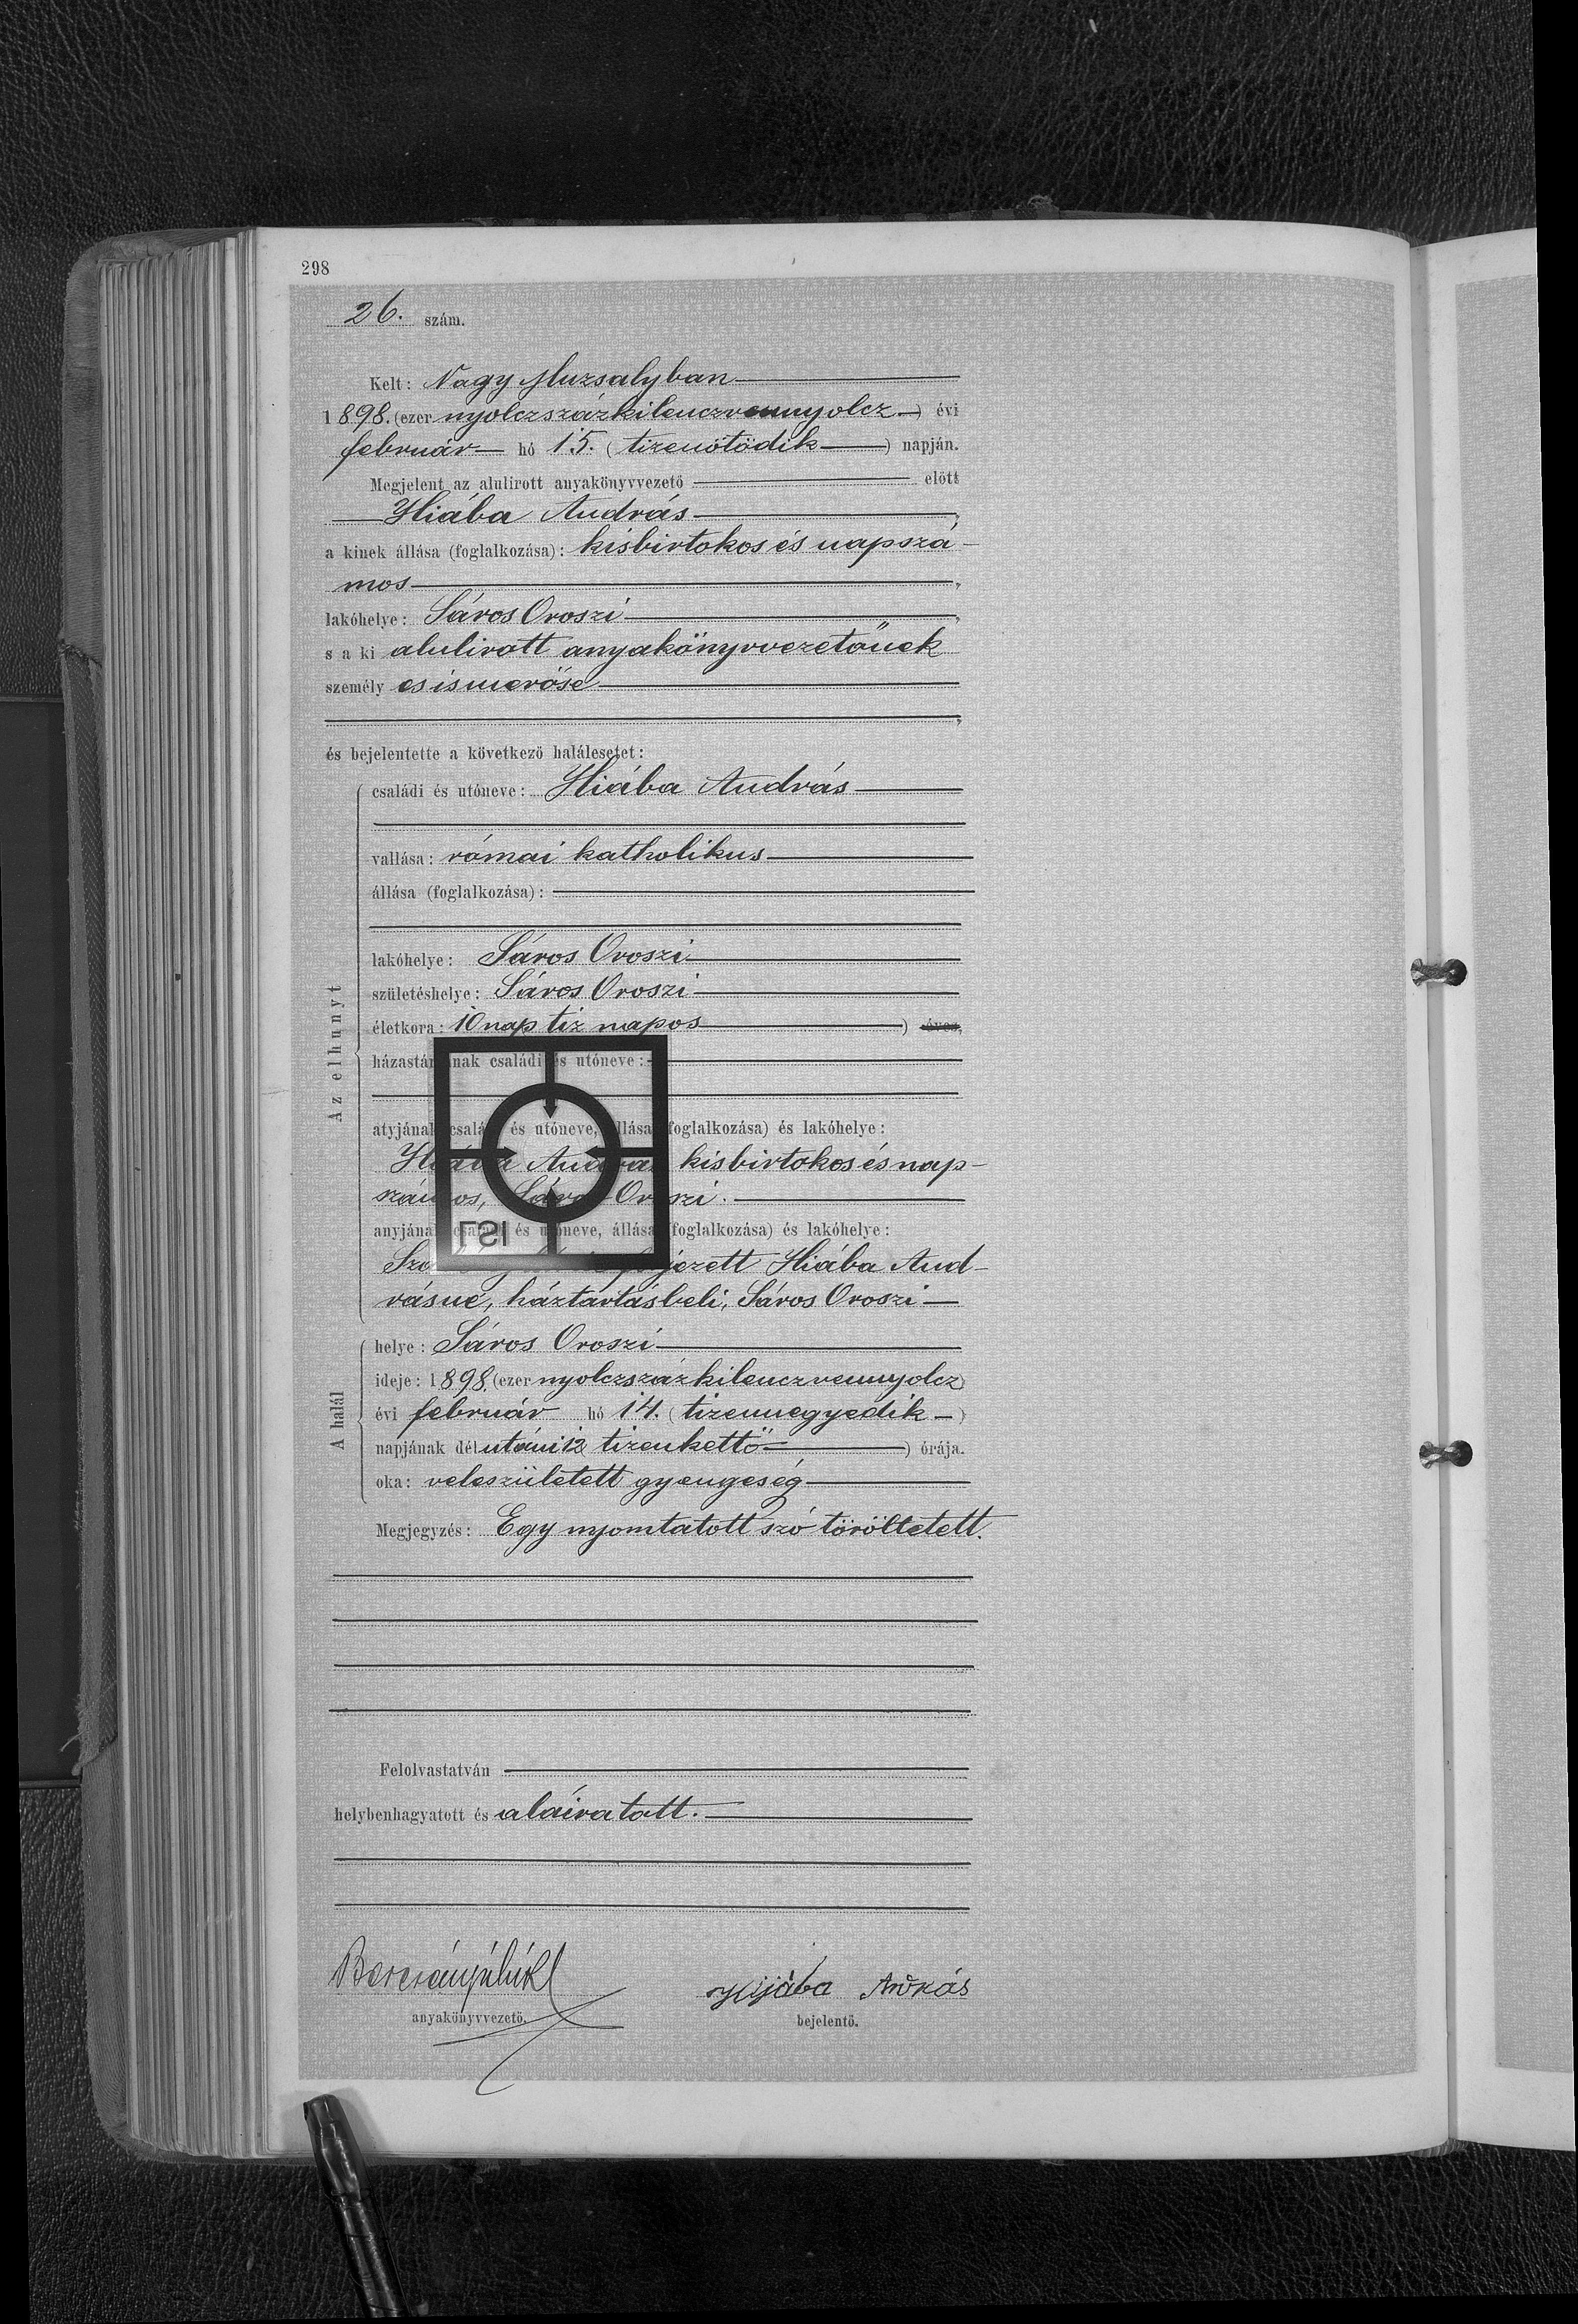 298
26. szám.
Kelt: Nagy Muzsalyban
1898. (ezer nyolczszázkilenczvennyolcz) évi
február hó 15. (tizenötödik) napján.
Megjelent az alulirott anyakönyvvezető előtt
Hiába András,
a kinek állása (foglalkozása): kisbirtokos és napszá-
mos,
lakóhelye: Sáros Oroszi,
s a ki alulirott anyakönyvvezetőnek
személyes ismerőse
,
és bejelentette a következő halálesetet:
Az elhunyt
családi és utóneve: Hiába András
vallása: római katholikus
állása (foglalkozása):
lakóhelye: Sáros Oroszi
születéshelye: Sáros Oroszi
életkora: 10 nap tiz napos) éves,
házastársának családi és utóneve:
atyjának családi és utóneve, állása (foglalkozása) és lakóhelye:
Hiába András kisbirtokos és nap-
számos, Sáros Oroszi.
anyjának családi és utóneve, állása (foglalkozása) és lakóhelye:
LSI
Hiába And-
rásné, háztartásbeli, Sáros Oroszi
A halál
helye: Sáros Oroszi
ideje: 1898. (ezer nyolczszázkilenczvennyolcz)
évi február hó 14. (tizennegyedik)
napjának délutáni 12 tizenkettő) órája.
oka: veleszületett gyengeség
Megjegyzés: Egy nyomtatott szó töröltetett.
Felolvastatván
helybenhagyatott és aláiratott.
Hijába András
anyakönyvvezető. bejelentő.